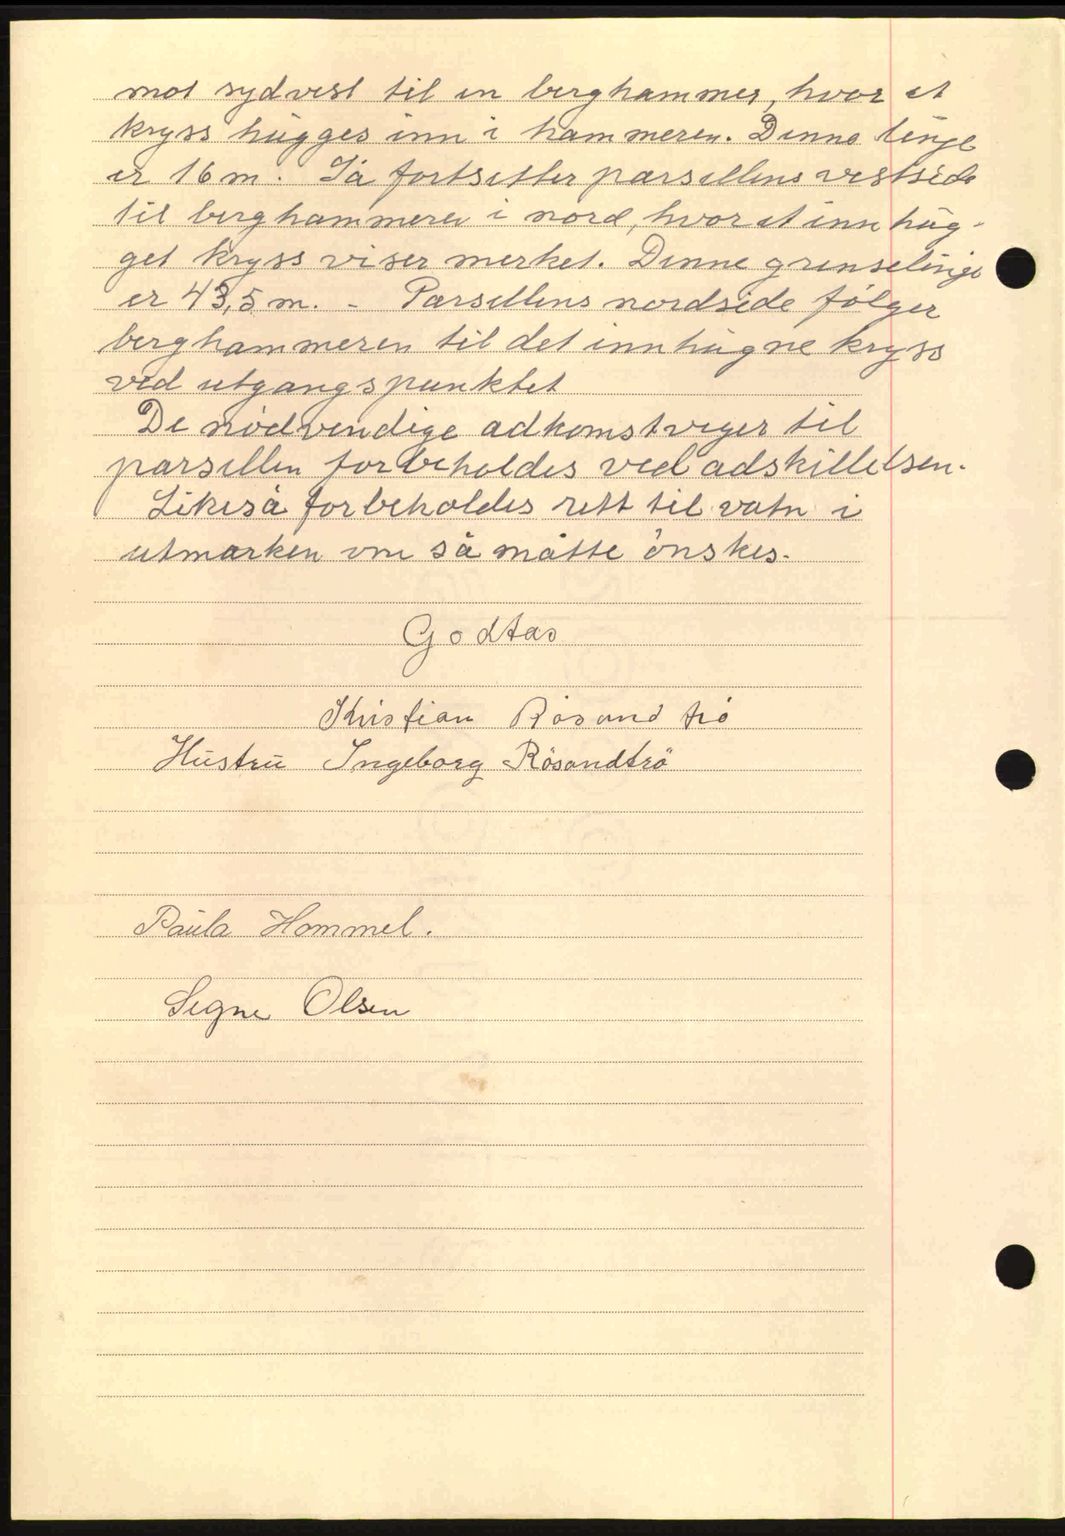 mot sydvest til en berghammer, hvor et
kryss hugges inn i hammeren. Denne linje
er 16 m. Så fortsetter parsellens vestside
til berghammeren i nord, hvor et innhug-
get kryss viser merket. Denne grenselinje
er 43,5 m. - Parsellens nordside følger
berghammeren til det innhugne kryss
ved utgangspunktet
De nødvendige adkomstveger til
parsellen forbeholdes ved adskillelsen.
Likeså forbeholdes rett til vatn i
utmarken om så måtte ønskes.
Godtas
Kristian Rösandtrö
Hustru Ingeborg Rösandtrö
Paula Hommel.
Segne Olsen